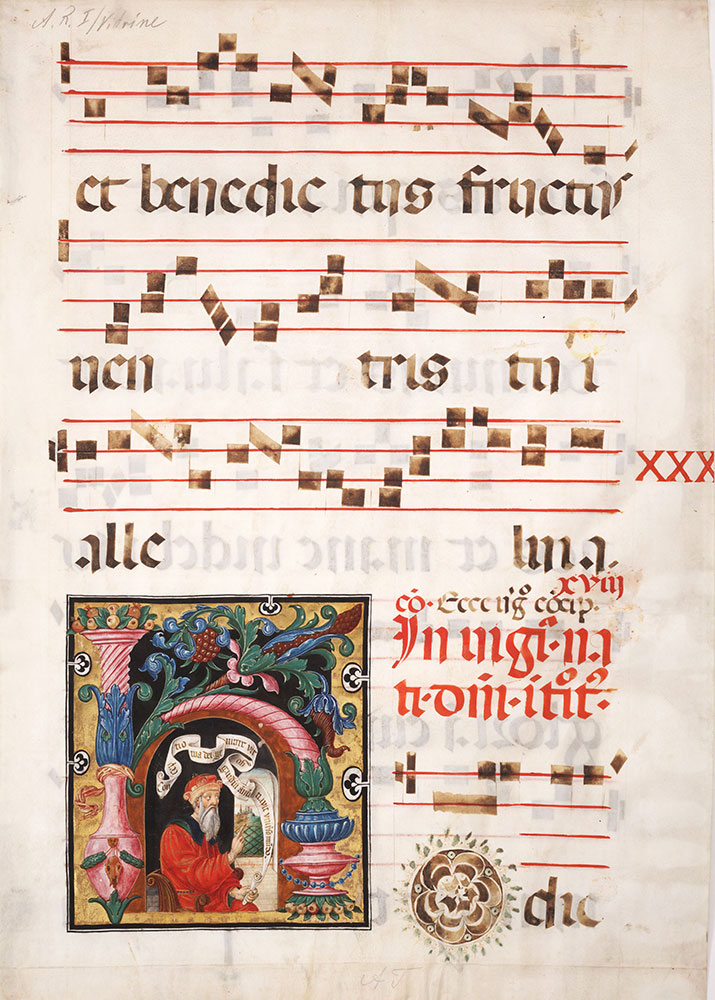 A.R.I/Vitrine
et benedic tus fructus
ven tris tu i
alle luia.
XXX
xviii
cō. Ecce v̄gō cōcip.
In vigi. na
te. dn̄i. itōit̄.
H o die